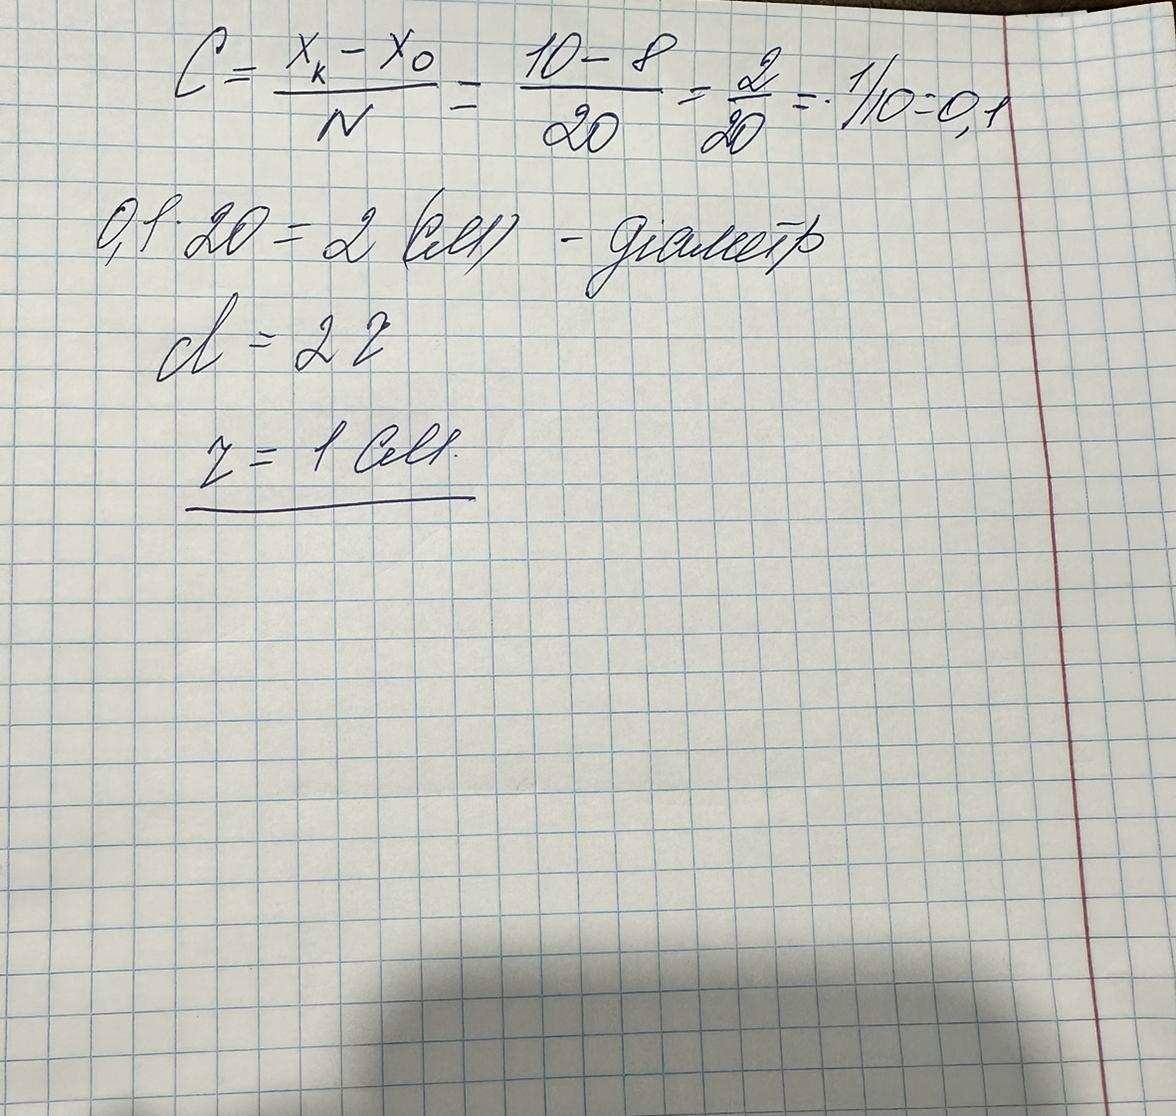 C = (xₖ - x₀)/N = (10 - 8)/20 = 2/20 = 1/10 = 0,1
0,1 · 20 = 2 (см) - діаметр
d = 2 r
r = 1 см.